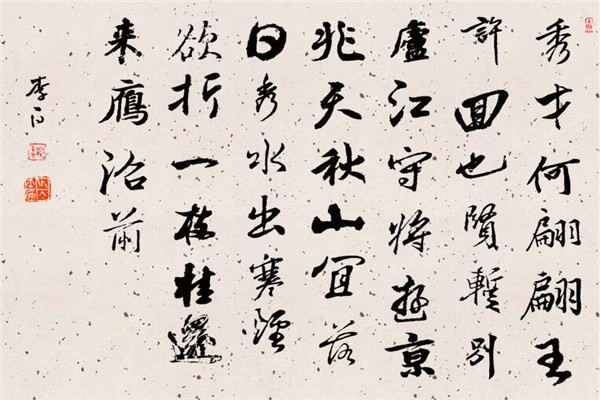 秀才何翩翩王
許回也賢暫別
廬江守將遊京
兆天秋山宜落
日秀水出寒煙
欲折一枝桂
来鴈沼前
李白